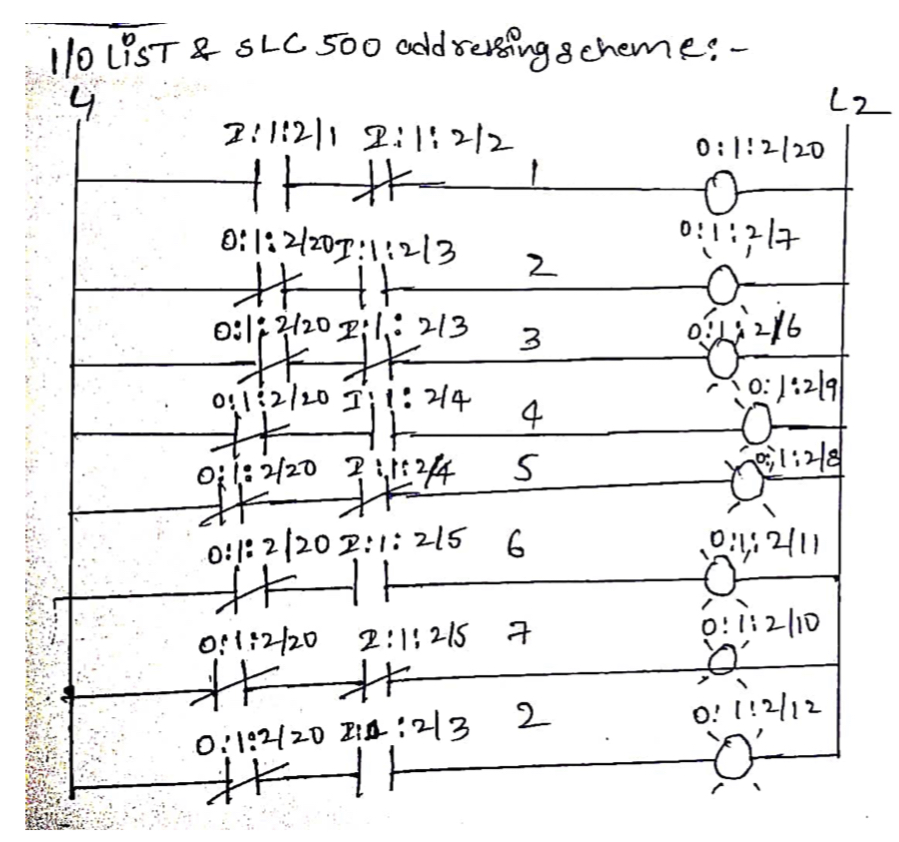 I/O LIST & SLC 500 addressing scheme:-
L1 L2
I:1:2/1 I:1:2/2 O:1:2/20
1
O:1:2/20 I:1:2/3 O:1:2/7
2
O:1:2/20 I:1:2/3 O:1:2/6
3
O:1:2/20 I:1:2/4 O:1:2/9
4
O:1:2/20 I:1:2/4 5 O:1:2/8
O:1:2/20 I:1:2/5 6 O:1:2/11
O:1:2/20 I:1:2/5 7 O:1:2/10
O:1:2/20 I:1:2/3 2 O:1:2/12